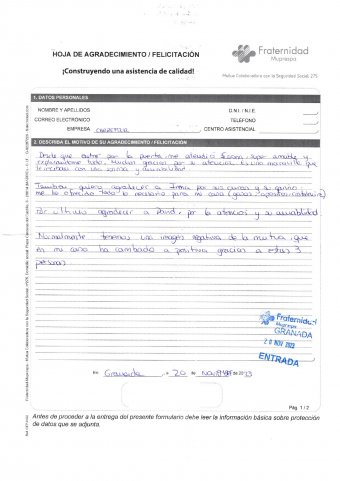 HOJA DE AGRADECIMIENTO / FELICITACIÓN
¡Construyendo una asistencia de calidad!
Fraternidad
Muprespa
Mutua Colaboradora con la Seguridad Social, 275
1. DATOS PERSONALES
NOMBRE Y APELLIDOS
D.N.I. / N.I.E.
CORREO ELECTRÓNICO
TELÉFONO
EMPRESA
CENTRO ASISTENCIAL
2. DESCRIBA EL MOTIVO DE SU AGRADECIMIENTO / FELICITACIÓN
Desde que entré por la puerta me atendió super amable y
gracias por su atención. Es una maravilla que
te reciban con una sonrisa y amabilidad.
También quiero agradecer a por sus curas y su cariño
me ha ofrecido todo lo necesario para mi cura (gasas, apósitos,
Por último agradecer a por la atención y su amabilidad
Normalmente tenemos una imagen negativa de la mutua, que
en mi caso ha cambiado a positiva gracias a estas 3
personas
Fraternidad
Muprespa
GRANADA
20 NOV 2023
ENTRADA
En Granada, a 20 de Noviembre de 2023
Pág. 1 / 2
Antes de proceder a la entrega del presente formulario debe leer la información básica sobre protección
de datos que se adjunta.